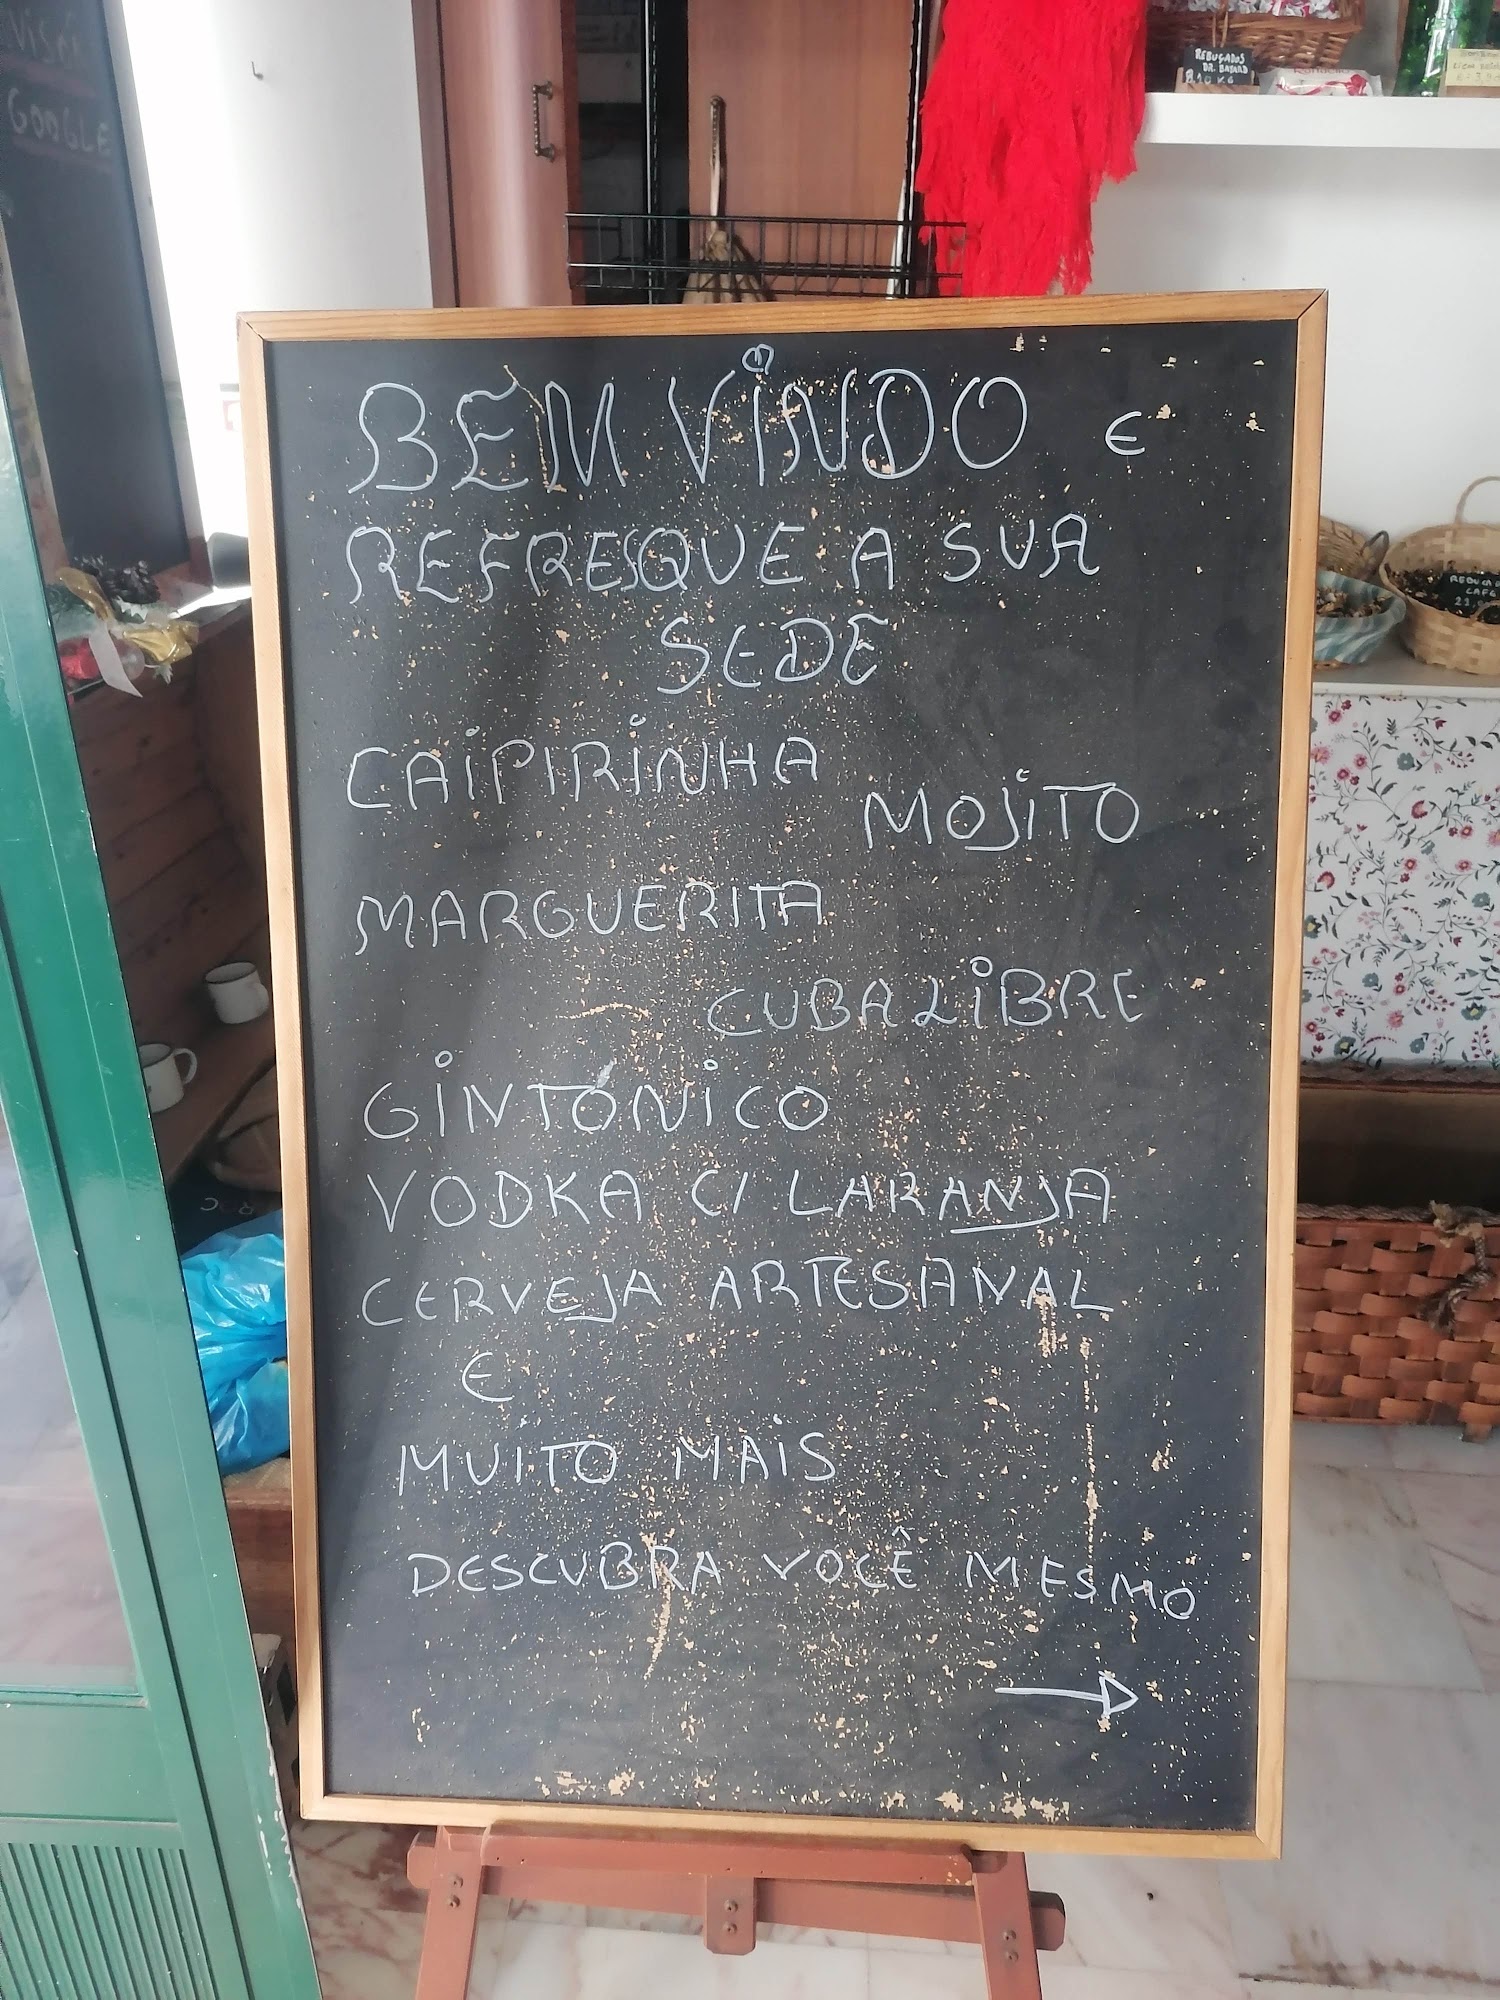 VISA
GOOGLE
REBUÇADOS
DR. BAYARD
BEM VINDO E
REFRESQUE A SUA
SEDE
CAIPIRINHA
MOJITO
MARGUERITA
CUBA LIBRE
GIN TONICO
VODKA C/ LARANJA
CERVEJA ARTESANAL
E
MUITO MAIS
DESCUBRA VOCÊ MESMO